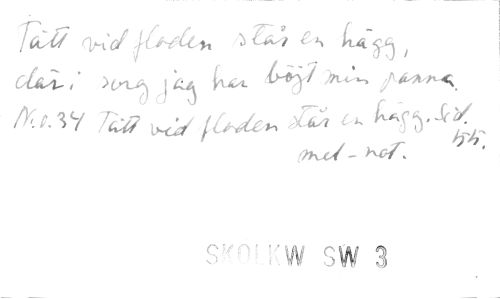 Tätt vid floden står en hägg,
där i sorg jag har böjt min panna.
N.o.34 Tätt vid floden står en hägg. Sid.
55.
mel-not.
SKOLKW SW 3